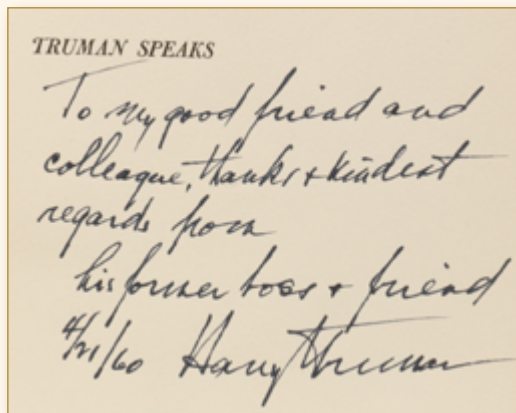 TRUMAN SPEAKS
To my good friend and
colleague, thanks + kindest
regards from
his former boss + friend
4/21/60 Harry Truman